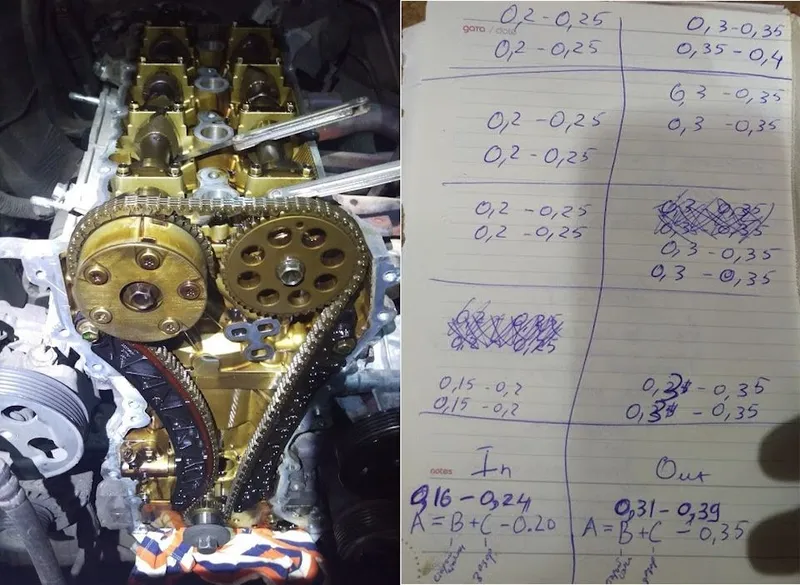 0,2 - 0,25 0,3 - 0,35
дата / date
0,2 - 0,25 0,35 - 0,4
0,3 - 0,35
0,2 - 0,25 0,3 - 0,35
0,2 - 0,25
0,2 - 0,25
0,2 - 0,25
0,3 - 0,35
0,3 - 0,35
0,15 - 0,2 0,3 - 0,35
0,15 - 0,2 0,3 - 0,35
notes
In Out
0,16 - 0,24 0,31 - 0,39
A = B + C - 0.20 A = B + C - 0,35